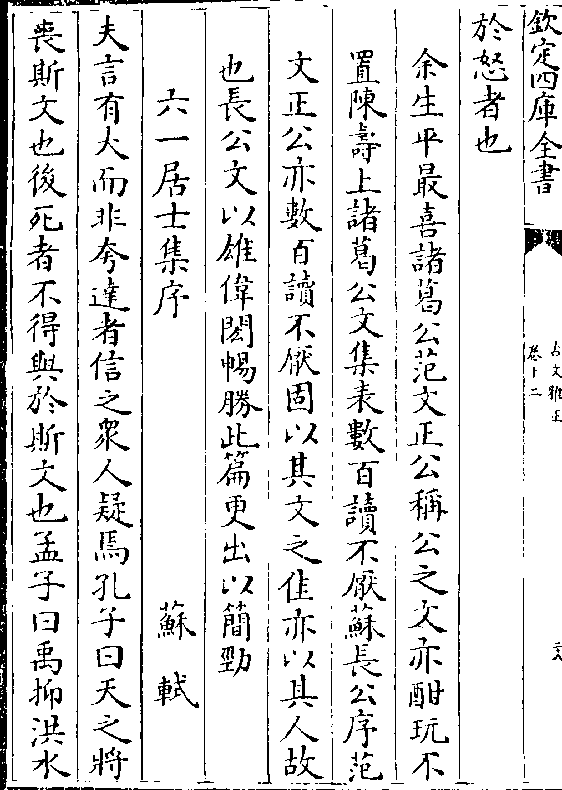 欽定四庫全書
古文雅正
卷十二
於怒者也
余生平最喜諸葛公范文正公稱公之文亦酣玩不
置陳壽上諸葛公文集表數百讀不厭蘇長公序范
文正公亦數百讀不厭固以其文之佳亦以其人故
也長公文以雄偉閎暢勝此篇更出以簡勁
六一居士集序 蘇軾
夫言有大而非夸達者信之衆人疑焉孔子曰天之將
喪斯文也後死者不得與於斯文也孟子曰禹抑洪水